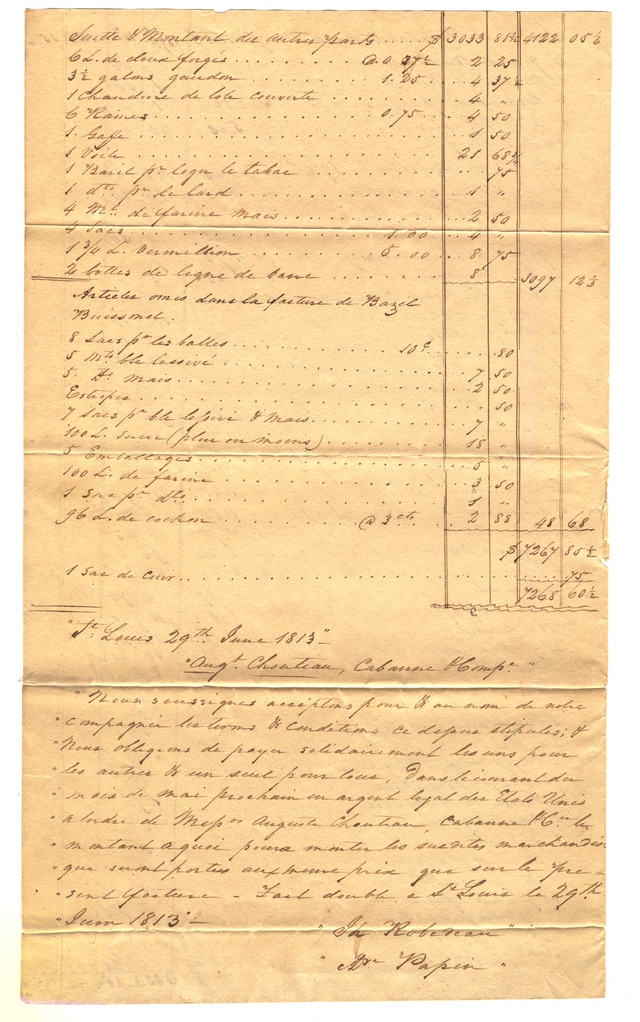 Suitte & Montant des autres parts . . . . $ 3033 88½ 4122 05½
6 L. de cloux forges . . . @ 0.37½ 2 25
3½ galons goudon . . . 1.25 4 37½
1 Chaudiere de tole couverte . . . 4 "
6 Rames . . . 0.75 4 50
1 Gaffe . . . 1 50
1 Voile . . . 21 68½
1 Baril pr. loger le tabac . . . 75
1 dto. pr. le lard . . . 1 "
4 Mts. de farine Mais . . . 2 50
4 Sacs . . . 1.00 4 "
1 3/4 L. Vermillion . . . 5.00 8 75
2 bottes de ligne de . . . 8 3097 12½
Articles omis dans la facture de Bazil
Buissonet.
8 Sacs pr. les balles . . . 10c. 80
5 Mts. ble lessivé . . . 7 50
5 Dt. Mais . . . 2 50
. . . 50
7 Sacs pr. ble lessivé & Mais . . . 7 "
100 L. Sucre (plus ou moins) . . . 18 "
5 Emballages . . . 5 "
100 L. de farine . . . 3 50
1 Sac pr. dto. . . . 1 "
96 L. de cochon . . . @ 3cts. 2 88 48 68
$ 7267 85½
1 Sac de cuir . . . 75
7268 60½
"St. Louis 29th. June 1813"
"Augt. Chouteau, Cabanne & Compe."
" Nous soussignes acceptons pour & au nom de notre
" compagnie les terms & conditions ce depus stipules; &
" Nous obligeons de payer solidairement les uns pour
" les autres & un seul pour tous, Dans le courant du
" mois de mai prochain en argent legal des Etats Unis
" a lordre de Messrs Auguste Chouteau, Cabanne & Cie. le
" montant a quoi poura monter les susdites marchandis
" que seront porties aux meme prix que sur le pre-
" sent facture - Fait double a St. Louis le 29th.
" Juin 1813 -
" Robideau "
" Papin "